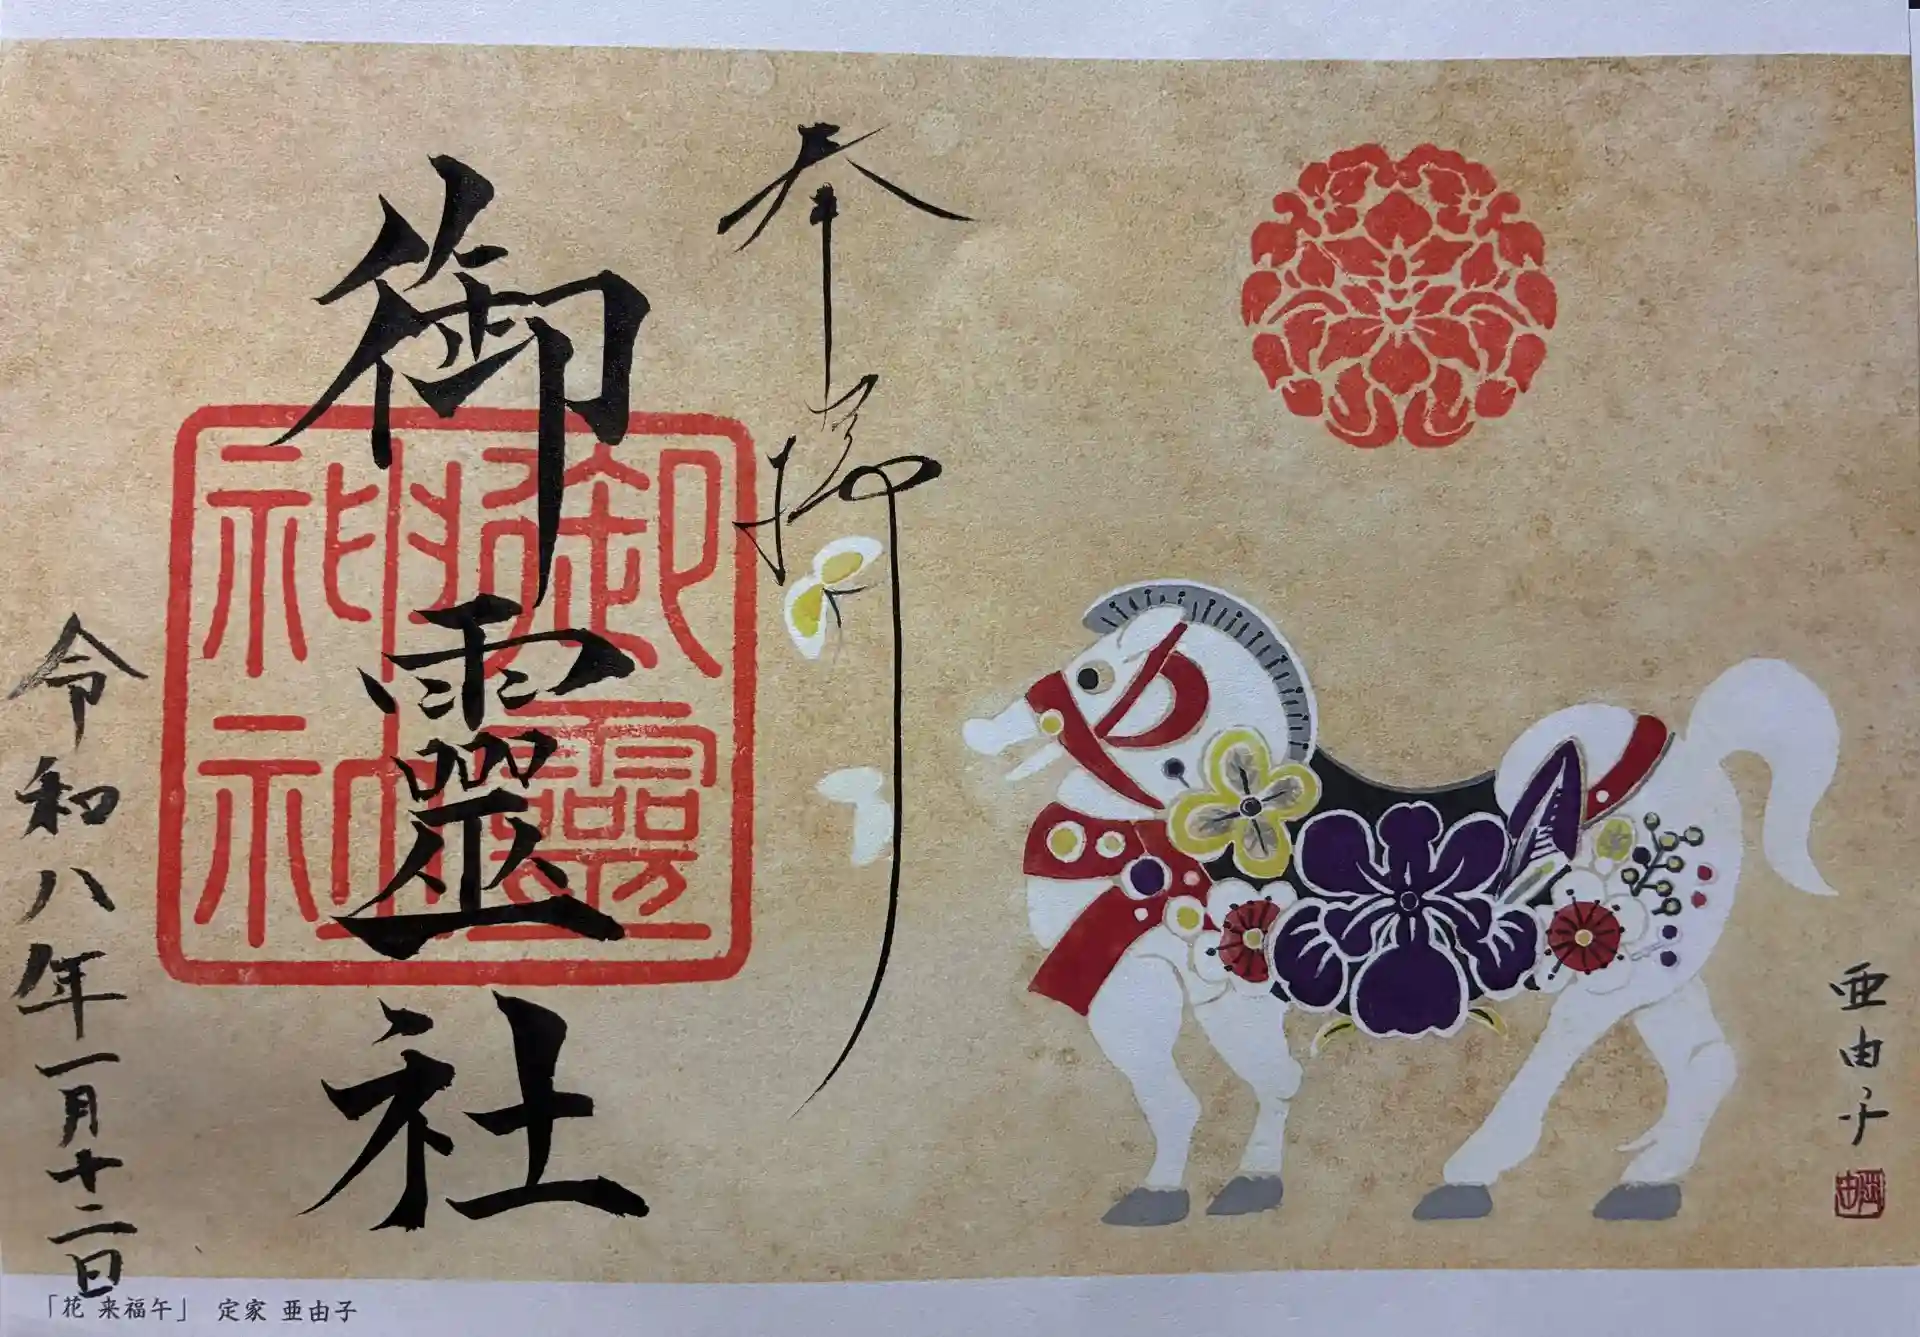 奉拝
御霊社
御靈神社
令和八年一月十二日
亜由子
「花 来福午」 定家 亜由子